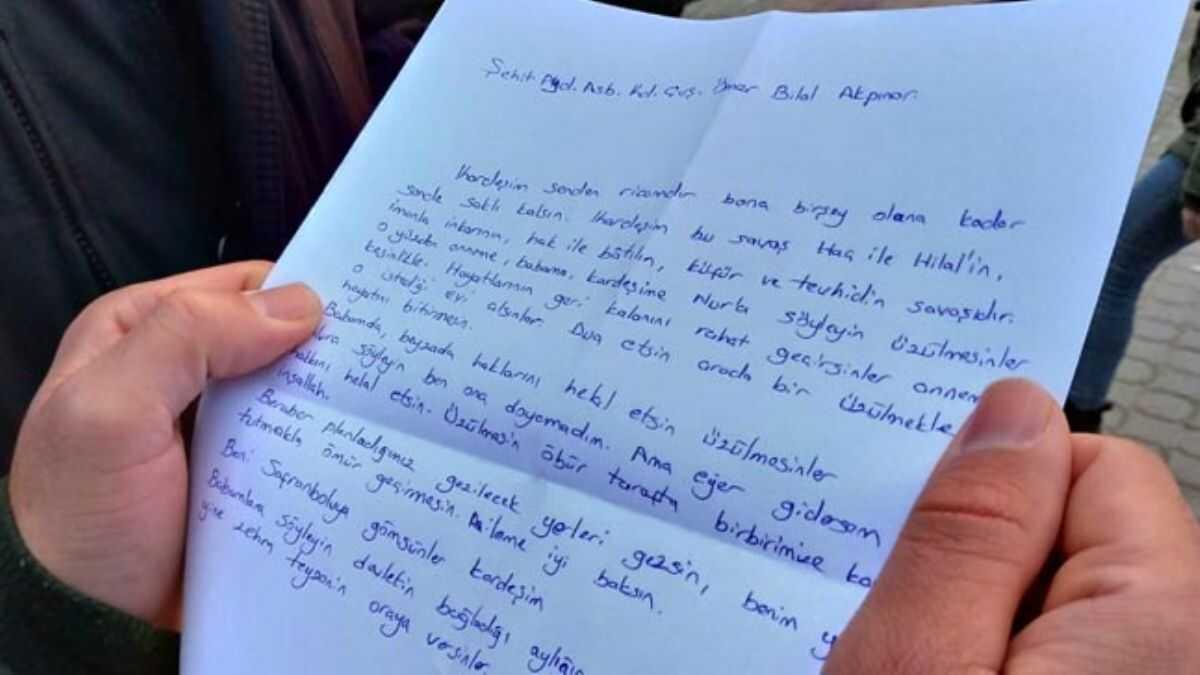 Şehit Asb. Kd. Çvş. Ömer Bilal Akpınar.
Kardeşim senden ricamdır bana birşey olana kadar
sende saklı kalsın. Kardeşim bu savaş Haç ile Hilal'in,
imanla inkarının, hak ile bâtılın, küfür ve tevhid'in savaşıdır.
O yüzden anneme, babama, kardeşime Nur'a söyleyin üzülmesinler
kesinlikle. Hayatlarının geri kalanını rahat geçirsinler annem
o istediği evi alsınler. Dua etsin orada bir üzülmekle
hayatını bitirmesin.
Babamda, beyzada haklarını helal etsin üzülmesinler
söyleyin ben ona doyamadım. Ama eğer gidersem
hakkını helal etsin. Üzülmesin öbür tarafta birbirimize
inşallah.
Beraber planladığımız gezilecek yerleri gezsin, benim
tutmakla ömür geçirmesin. Aileme iyi baksın.
Beni Safranboluya gömsünler kardeşim
Babamlara söyleyin devletin bağladığı aylığın
yine zehra teyzenin oraya versinler.